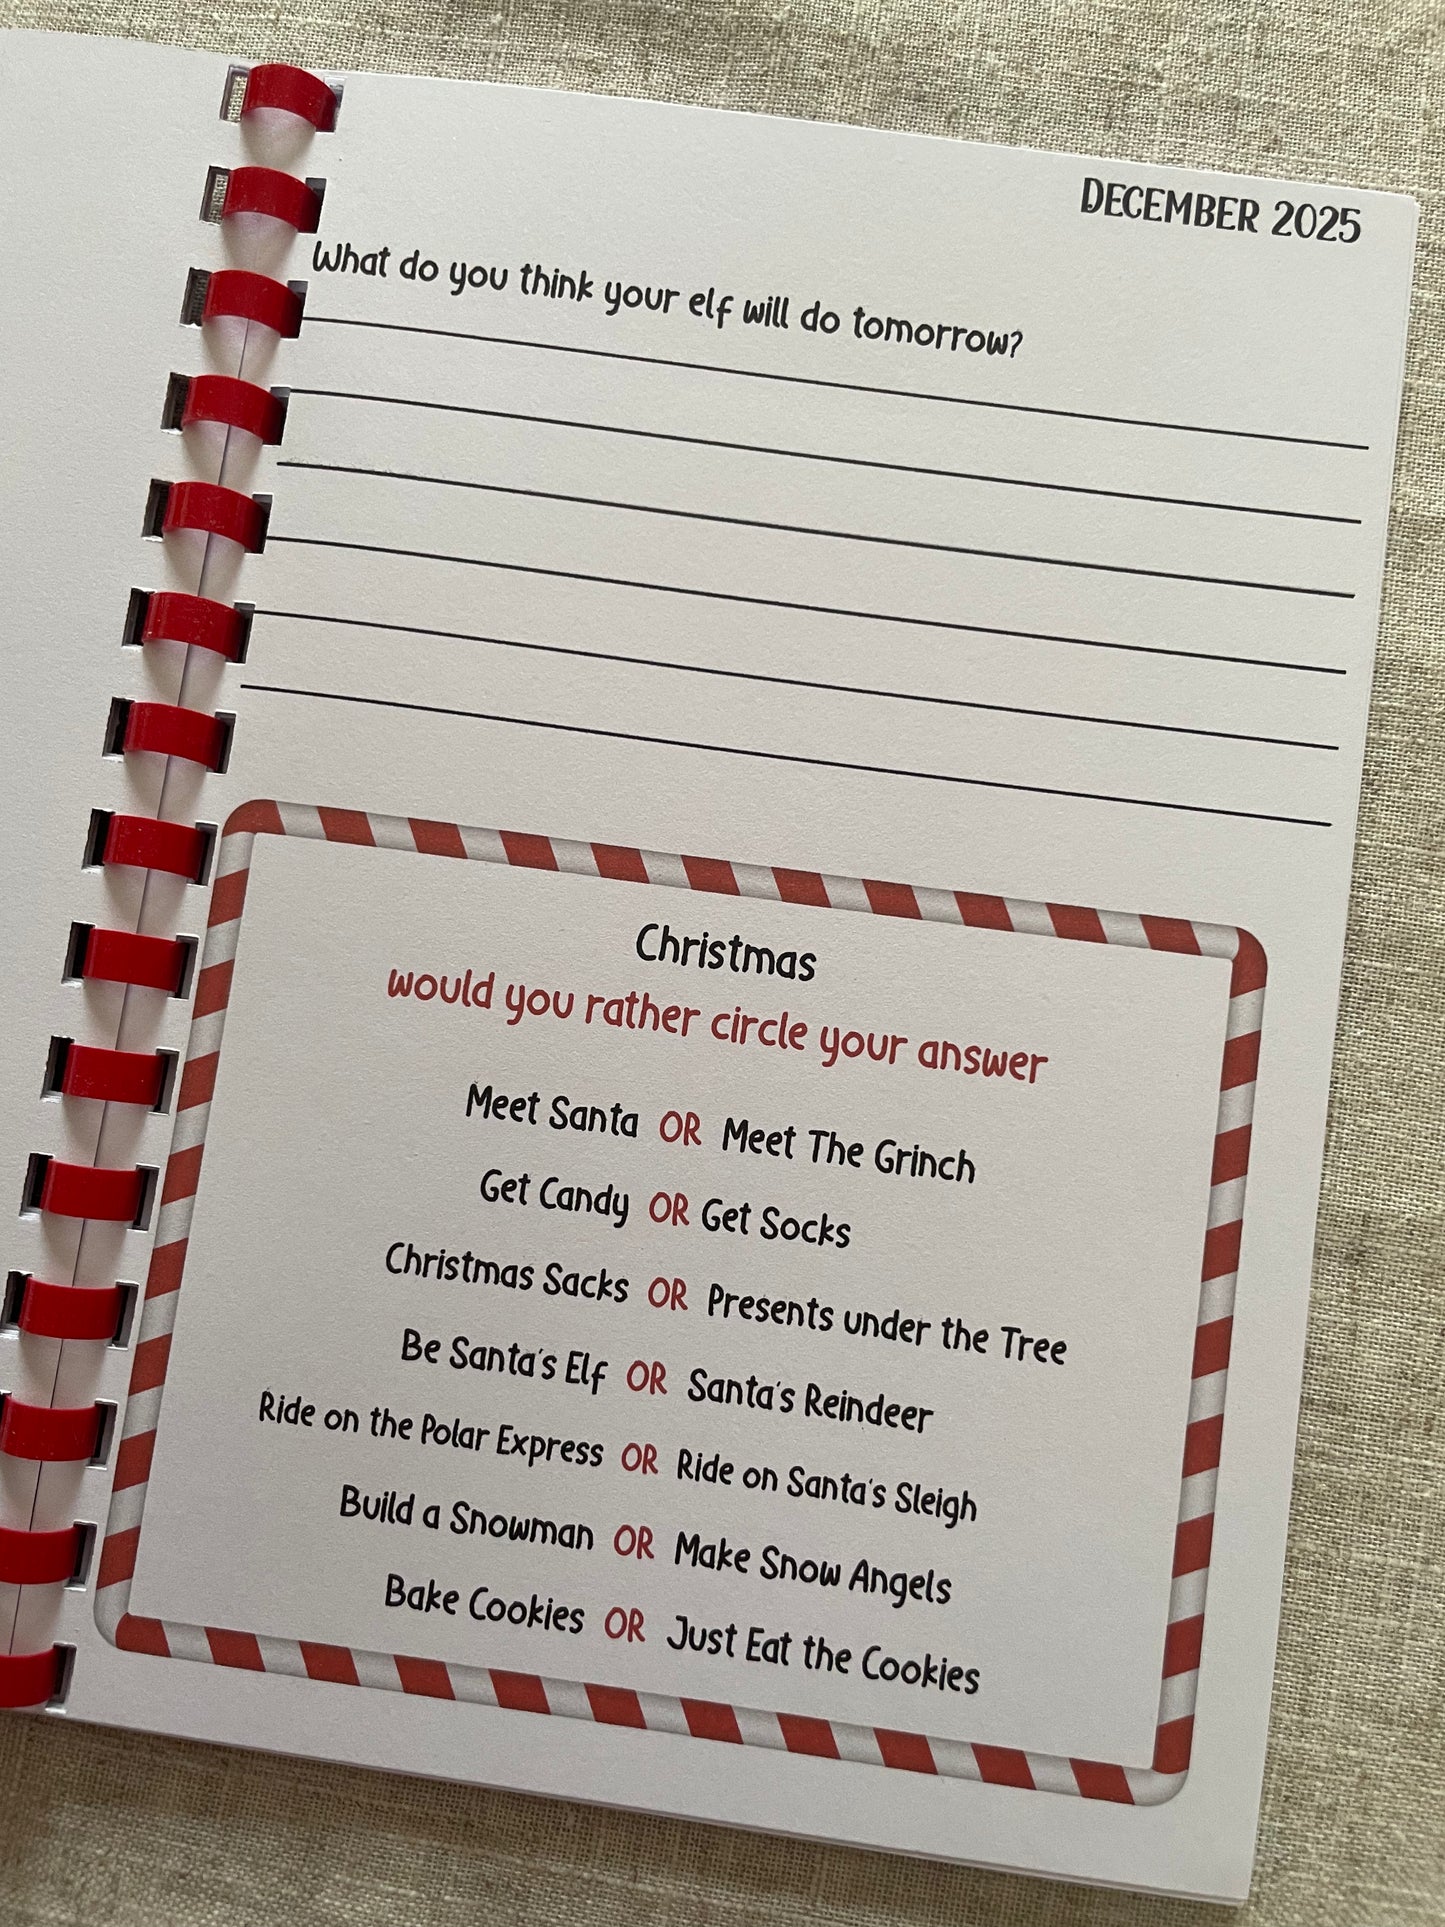 DECEMBER 2025
What do you think your elf will do tomorrow?
Christmas
would you rather circle your answer
Meet Santa OR Meet The Grinch
Get Candy OR Get Socks
Christmas Sacks OR Presents under the Tree
Be Santa's Elf OR Santa's Reindeer
Ride on the Polar Express OR Ride on Santa's Sleigh
Build a Snowman OR Make Snow Angels
Bake Cookies OR Just Eat the Cookies